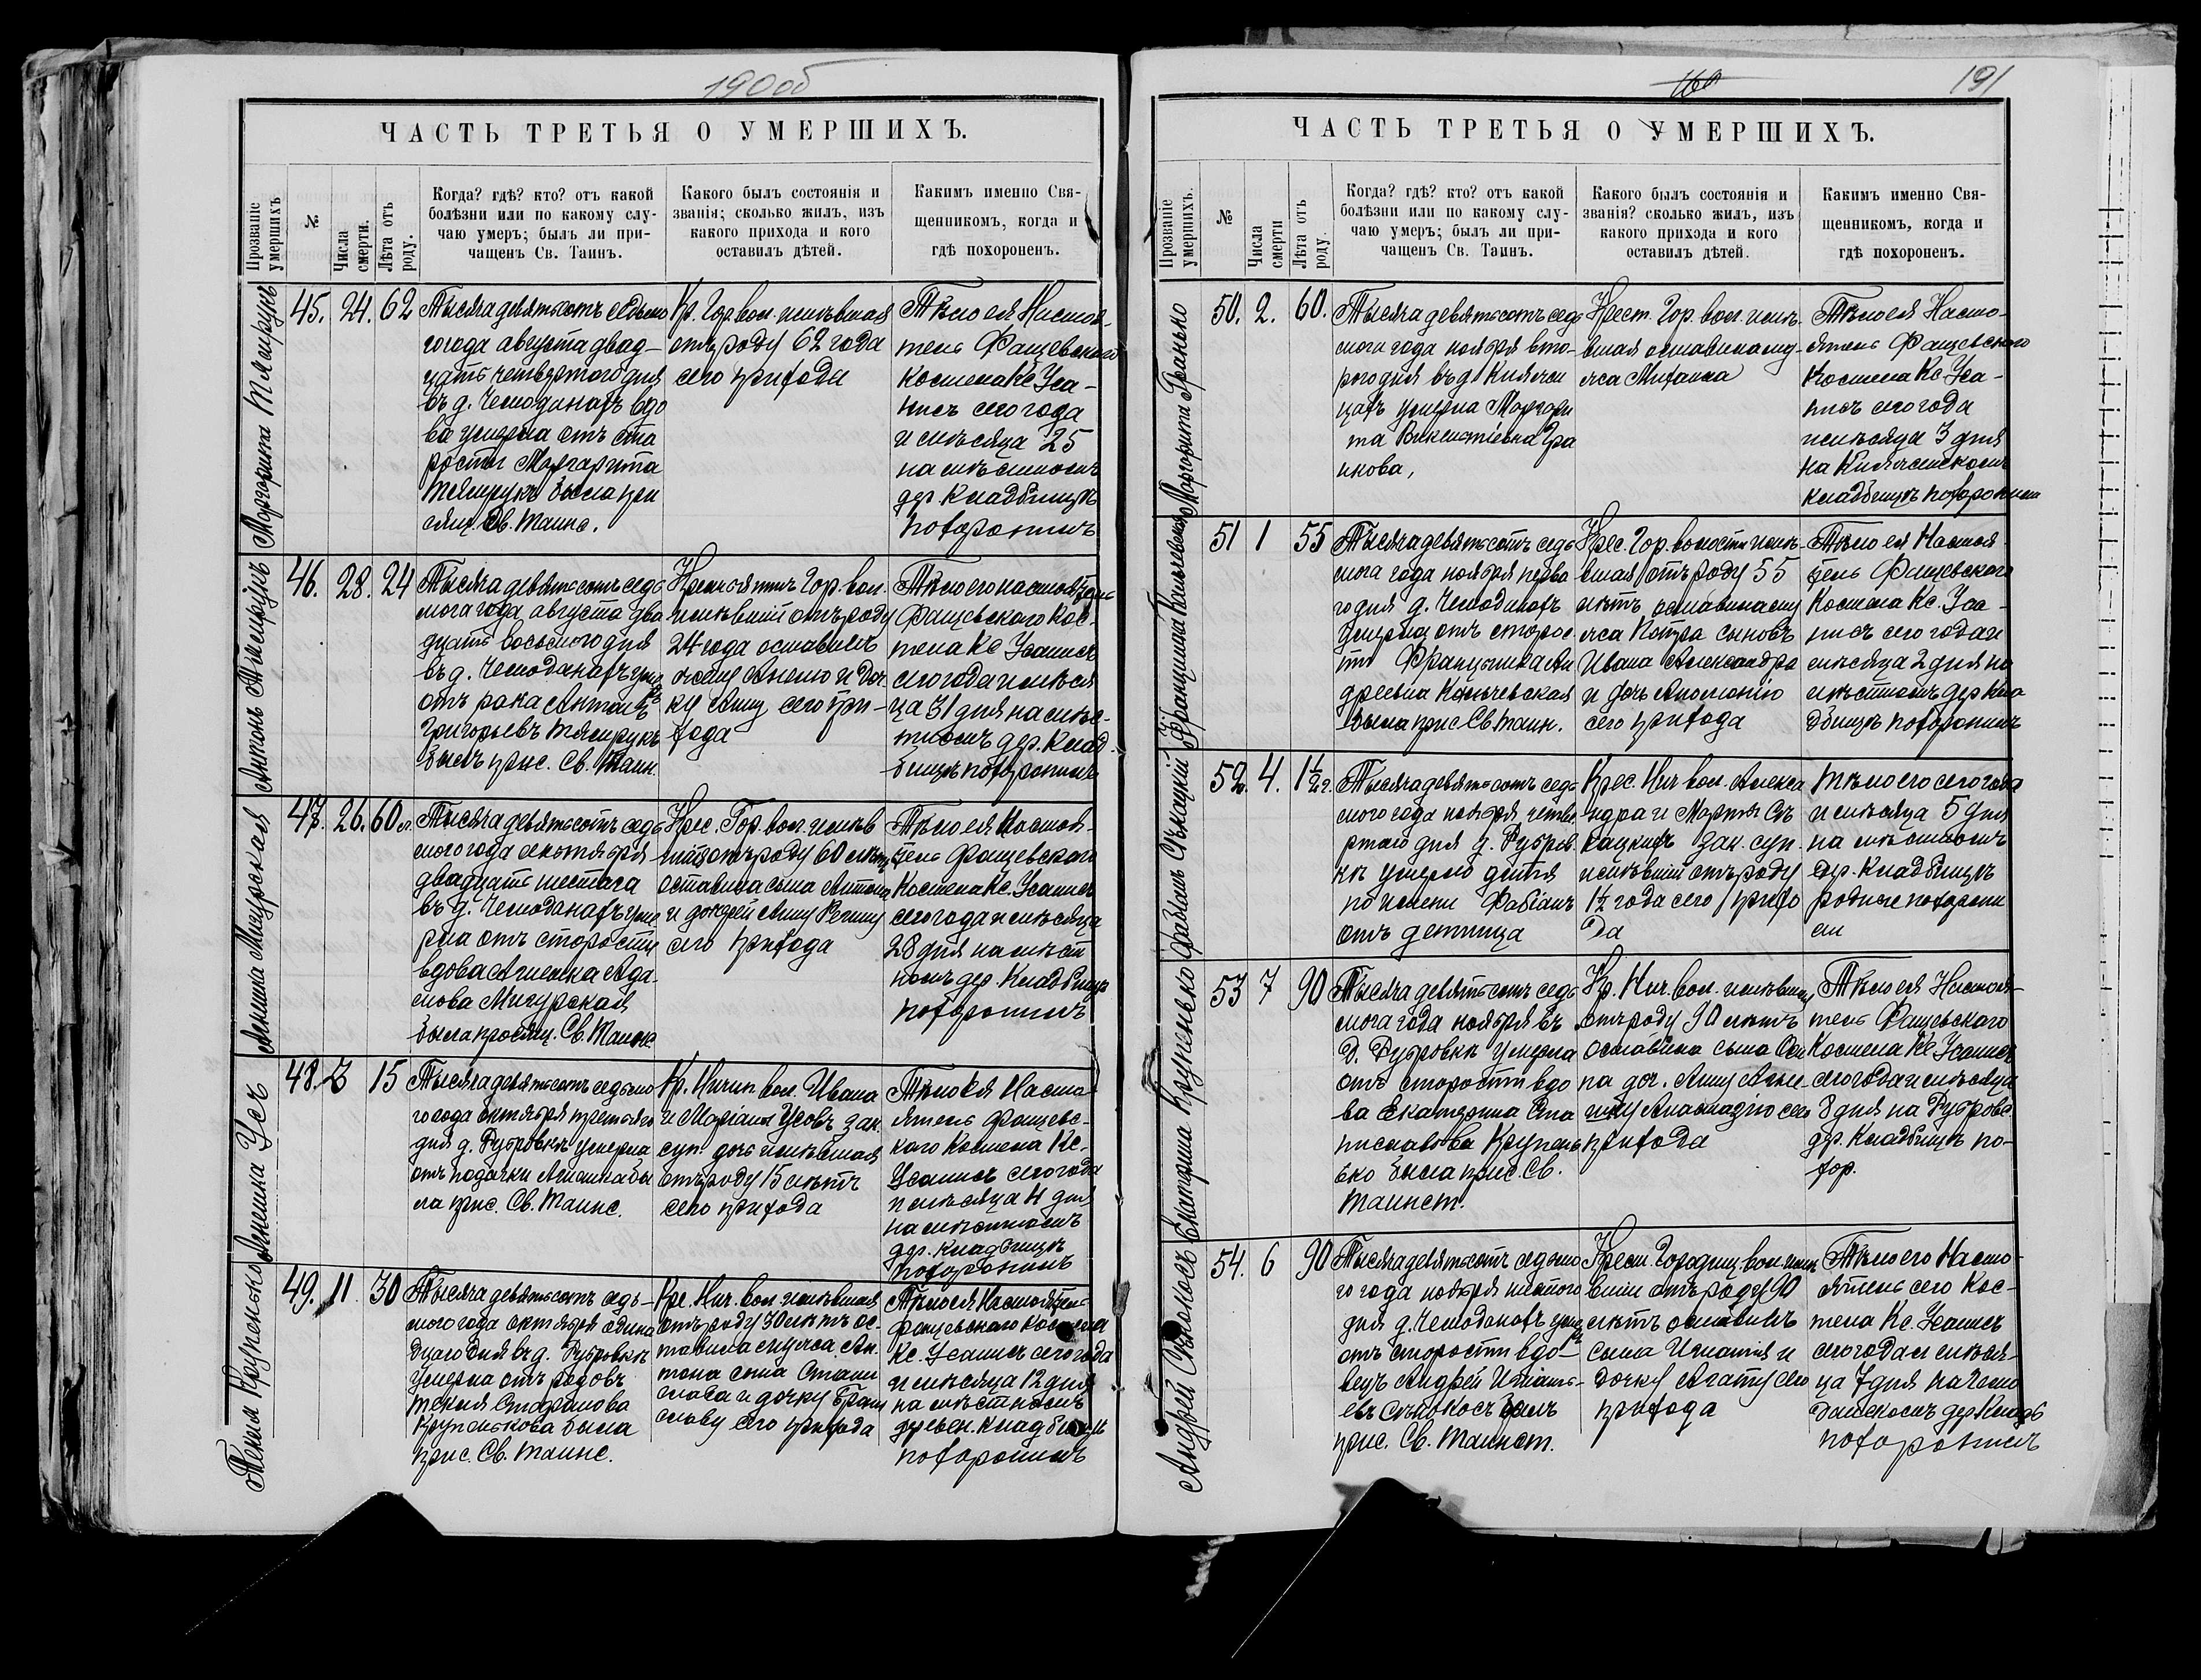 190об
ЧАСТЬ ТРЕТЬЯ О УМЕРШИХЪ.
Прозваніе умершихъ
№
Числа смерти.
Лѣта отъ роду.
Когда? гдѣ? кто? отъ какой
болѣзни или по какому слу-
чаю умеръ; былъ ли при-
чащенъ Св. Таинъ.
Какого былъ состоянія и
званія; сколько жилъ, изъ
какого прихода и кого
оставилъ дѣтей.
Какимъ именно Свя-
щенникомъ, когда и
гдѣ похороненъ.
Маргарита Тямрукъ
45. 24. 62
Тысяча девятьсотъ седьмо
го года августа двад-
цать четвертого дня
въ д. Чемоданахъ вдо
ва умерла отъ ста
рости Маргарита
Тямрукъ была при
Св. Таинс.
Кр. Гор. вол. имѣвшая
отъ роду 62 года
сего прихода
Тѣло ея Настоя-
тель Фащевского
Костела Кс. Уса-
нисъ сего года
и мѣсяца 25
на мѣстномъ
дер. Кладбищѣ
похоронилъ
Антонъ Тямрукъ
46. 28. 24
Тысяча девятьсотъ седь
мого года августа два
дцать восьмого дня
въ д. Чемоданахъ уме
отъ рака Антонъ
Григорьевъ Тямрукъ
былъ прис. Св. Таин.
Крестьянинъ Гор. вол.
имѣвшій отъ роду
24 года оставилъ
жену Анелю и доч-
ку Анну сего при-
хода
Тѣло его настоятель
Фащевского Кос-
тела Кс Усанисъ
сего года и мѣся
ца 31 дня на мѣс-
тномъ дер. Клад-
бищѣ похоронилъ
Агнешка Мигурская
47. 26. 60 л.
Тысяча девятьсотъ седь
мого года сентября
двадцать шестага
въ д. Чемоданахъ уме
рла отъ старости
вдова Агнешка Ада
мова Мигурская
была Св. Таинс
Крес. Гор. вол. имѣв
отъ роду 60 лѣтъ
оставила сына Антона
и дочерей Анну Регину
сего прихода
Тѣло ея Настоя-
тель Фащевского
Костела Кс. Усанисъ
сего года и мѣсяца
28 дня на мѣст
номъ дер. Кладбищѣ
похоронилъ
Агнешка Усъ
48. 3 15
Тысяча девятьсотъ седьмо
го года октября третьяго
дня д. Дубровкѣ умерла
отъ падачки Агнешка бы
ла прис. Св. Таинс.
Кр. Ничип. вол. Ивана
и Марiаны Усовъ зак.
суп. дочь имѣвшая
отъ роду 15 лѣтъ
сего прихода
Тѣло Ея Насто
ятель Фащевс-
кого Костела Кс.
Усанисъ сего года
и мѣсяца 4 дня
на мѣстномъ
дер. кладбищѣ
похоронилъ
Текля Крупенько
49. 11. 30
Тысяча девятьсотъ седь-
мого года октября одина
дцаго Дня въ д. Дубровкѣ
умерла отъ родовъ
Текля Стефанова
Крупенькова была
прис. Св. Таинс.
Кре. Нич. вол. имѣвшая
отъ роду 30 лѣтъ ос-
тавила мужа Ан.
тона сына Стани
слава и дочку Брани
славу сего прихода
Тѣло ея Настоятель
Фащевского Костела
Кс. Усанисъ сего года
и мѣсяца 12 дня
на мѣстномъ
деревен. кладбищѣ
похоронилъ
160
191
ЧАСТЬ ТРЕТЬЯ О УМЕРШИХЪ.
Прозваніе умершихъ.
№
Числа смерти
Лѣта отъ роду.
Когда? гдѣ? кто? отъ какой
болѣзни или по какому слу-
чаю умеръ; былъ ли при-
чащенъ Св. Таинъ.
Какого былъ состоянія и
званія? сколько жилъ, изъ
какого прихода и кого
оставилъ дѣтей.
Какимъ именно Свя-
щенникомъ, когда и
гдѣ похороненъ.
Маргарита Гранько
50. 2. 60.
Тысяча девятьсотъ седь
мога года ноября вто-
рого дня въ д. Княжи
цахъ умерла Маргари
та Викентiевна Гра
нкова,
Крест. Гор. вол. имѣ-
вшая оставила му-
жа Михаила
Тѣло ея Насто-
ятель Фащевского
Костела Кс Уса-
нисъ сего года
и мѣсяца 3 дня
на Княжицкомъ
кладбищѣ похоронилъ
51 1 55
Тысяча девятьсотъ седь
мога года ноября перва
го дня д. Чемоданахъ
умерла отъ старос.
ти Францишка Ан
дреевна
была прис Св Таин.
Крес. Гор. волости имѣ-
вшая отъ роду 55
лѣтъ оставила му
жа Петра сыновъ
Ивана Александра
и дочь Аполонiю
сего прихода
Тѣло ея Настоя-
тель Фащевского
Костела Кс. Уса-
нисъ сего года и
мѣсяца 2 дня на
мѣстномъ дер Кла
дбищѣ похоронилъ
52. 4. 1½ г.
Тысяча девятьсотъ седь
мого года ноября четве
ртаго дня д. Дубров.
кѣ умерло дитя
по имени Фабiанъ
отъ
Крес. Нич вол. Алекса
ндра и Марты Съ
кацкихъ зак. суп.
имѣвшiй отъ роду
1½ года сего прихо
да
Тѣло его сего года
и мѣсяца 5 дня
на мѣстномъ
дер. Кладбищѣ
родные похорони
ли
Екатерина Крупенько
53 7 90
Тысяча девятьсотъ седь
мога года ноября въ
д. Дубровкѣ умерла
отъ старости вдо
ва Екатерина Ста
ниславова Крупень
ько была прис. Св.
Таинст.
Кр. Нич. вол. имѣвшая
отъ роду 90 лѣтъ
оставила сына
на доч. Анну Агне
шку сего
прихода
Тѣло ея Настоя-
тель Фащевского
Костела Кс Усанисъ
сего года и мѣсяца
8 дня на Дубровс.
дер. Кладбищѣ по-
хор.
54. 6 90
Тысяча девятьсотъ седьмо
го года ноября шестого
дня д. Чемоданахъ уме
отъ старости вдо-
вецъ Андрей Игнать-
евъ былъ
прис. Св. Таинст.
Крест. Городищ вол. имѣ
вшiй отъ роду 90
лѣтъ оставилъ
сына Игнатiя и
дочку Агату сего
прихода
Тѣло его Насто-
ятель сего Кос-
тела Кс. Усанисъ
сего года и мѣся-
ца 7 дня на Чемо
данскомъ дер Кладб
похоронилъ